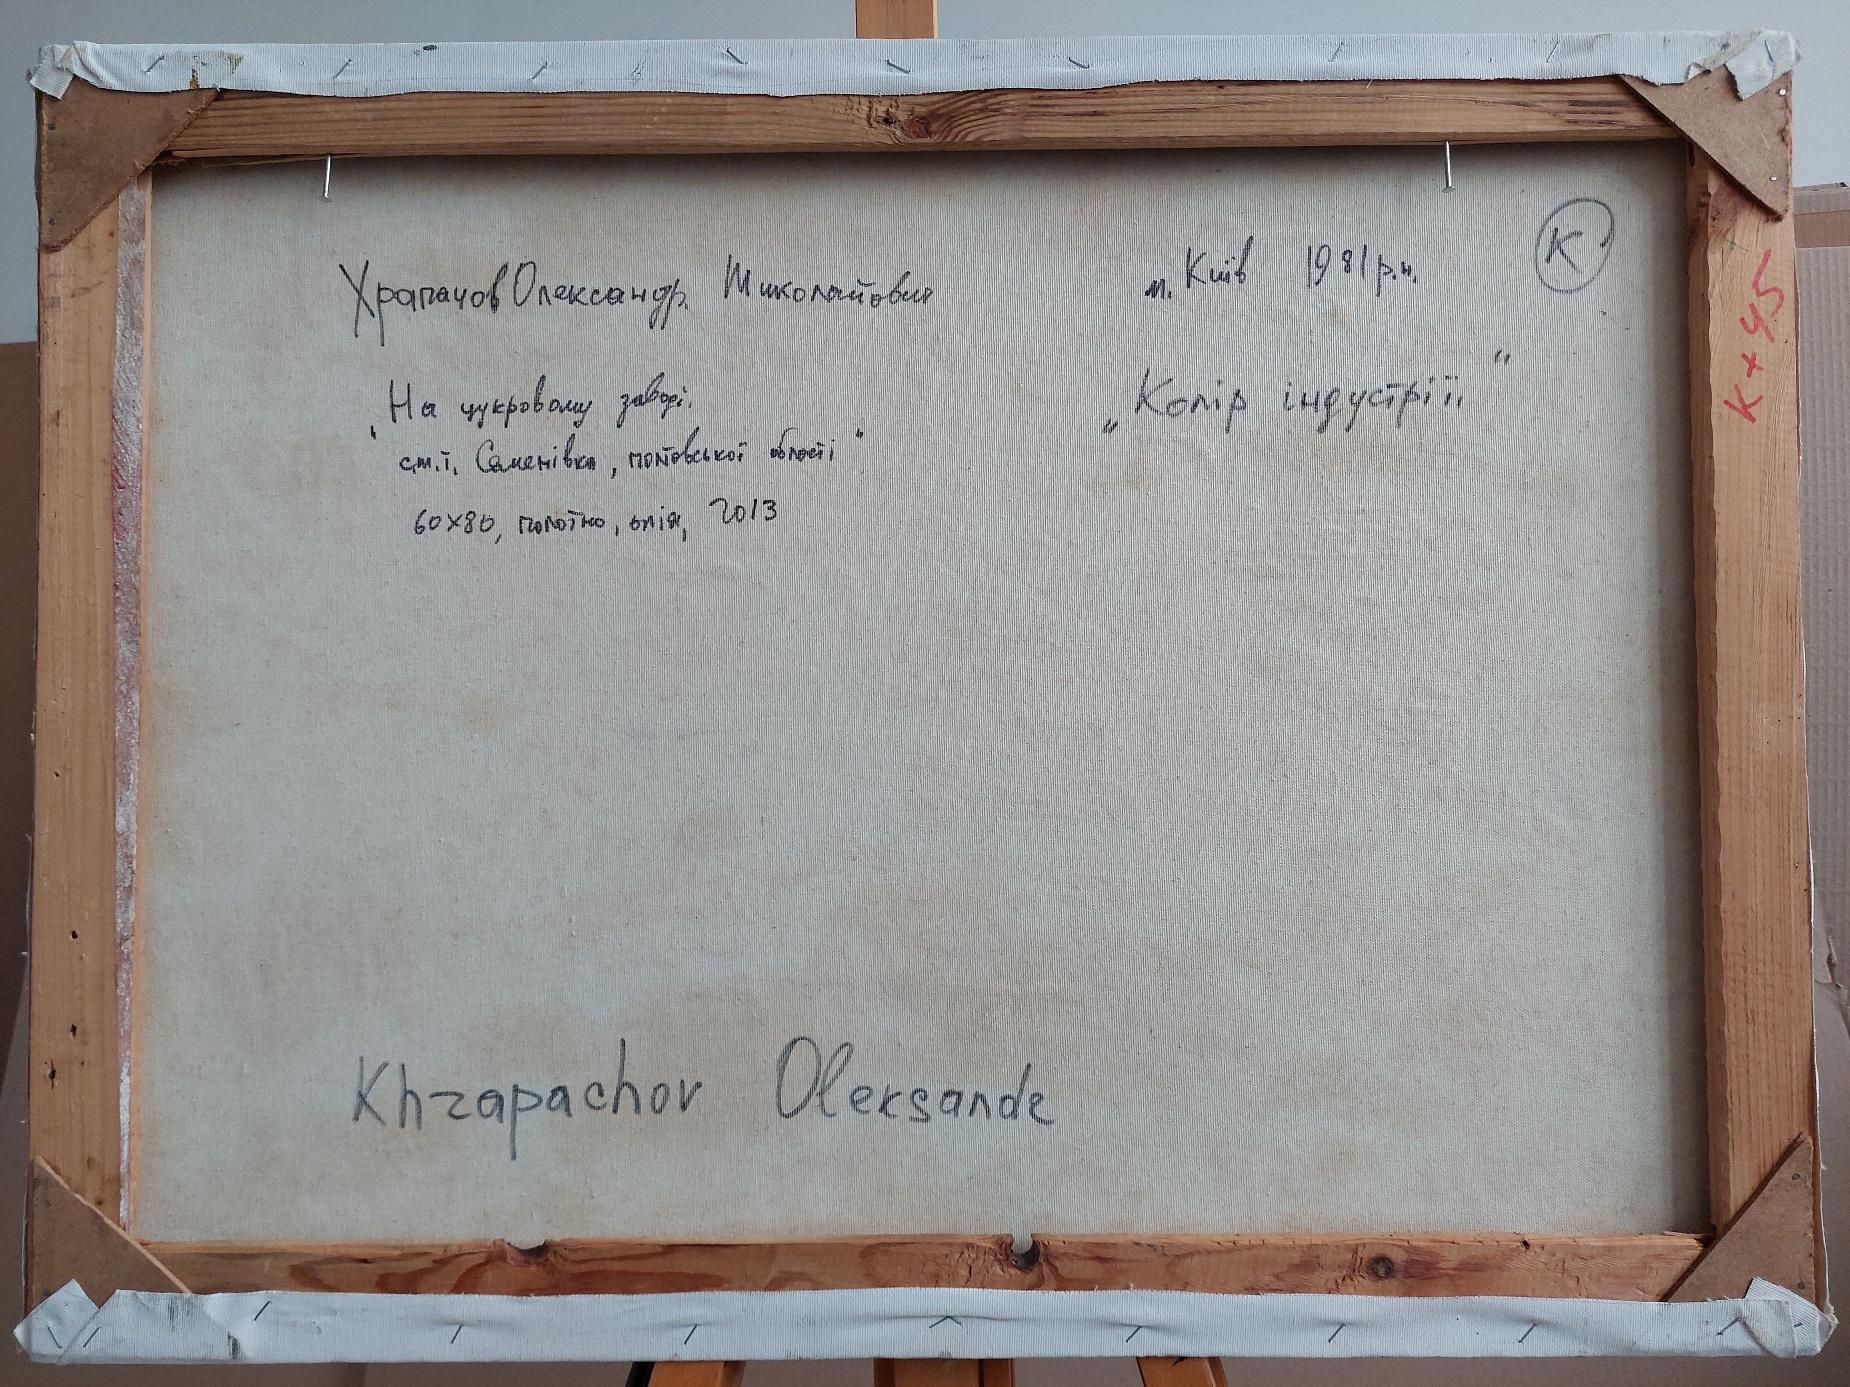 Храпачов Олександр Миколайович
м. Київ 1981 р.н.
К
К + 45
"На цукровому заводі.
с.м.т. Семенівка, полтавської області"
„Колір індустрії"
60х80, полотно, олія, 2013
Khrapachov Oleksandr